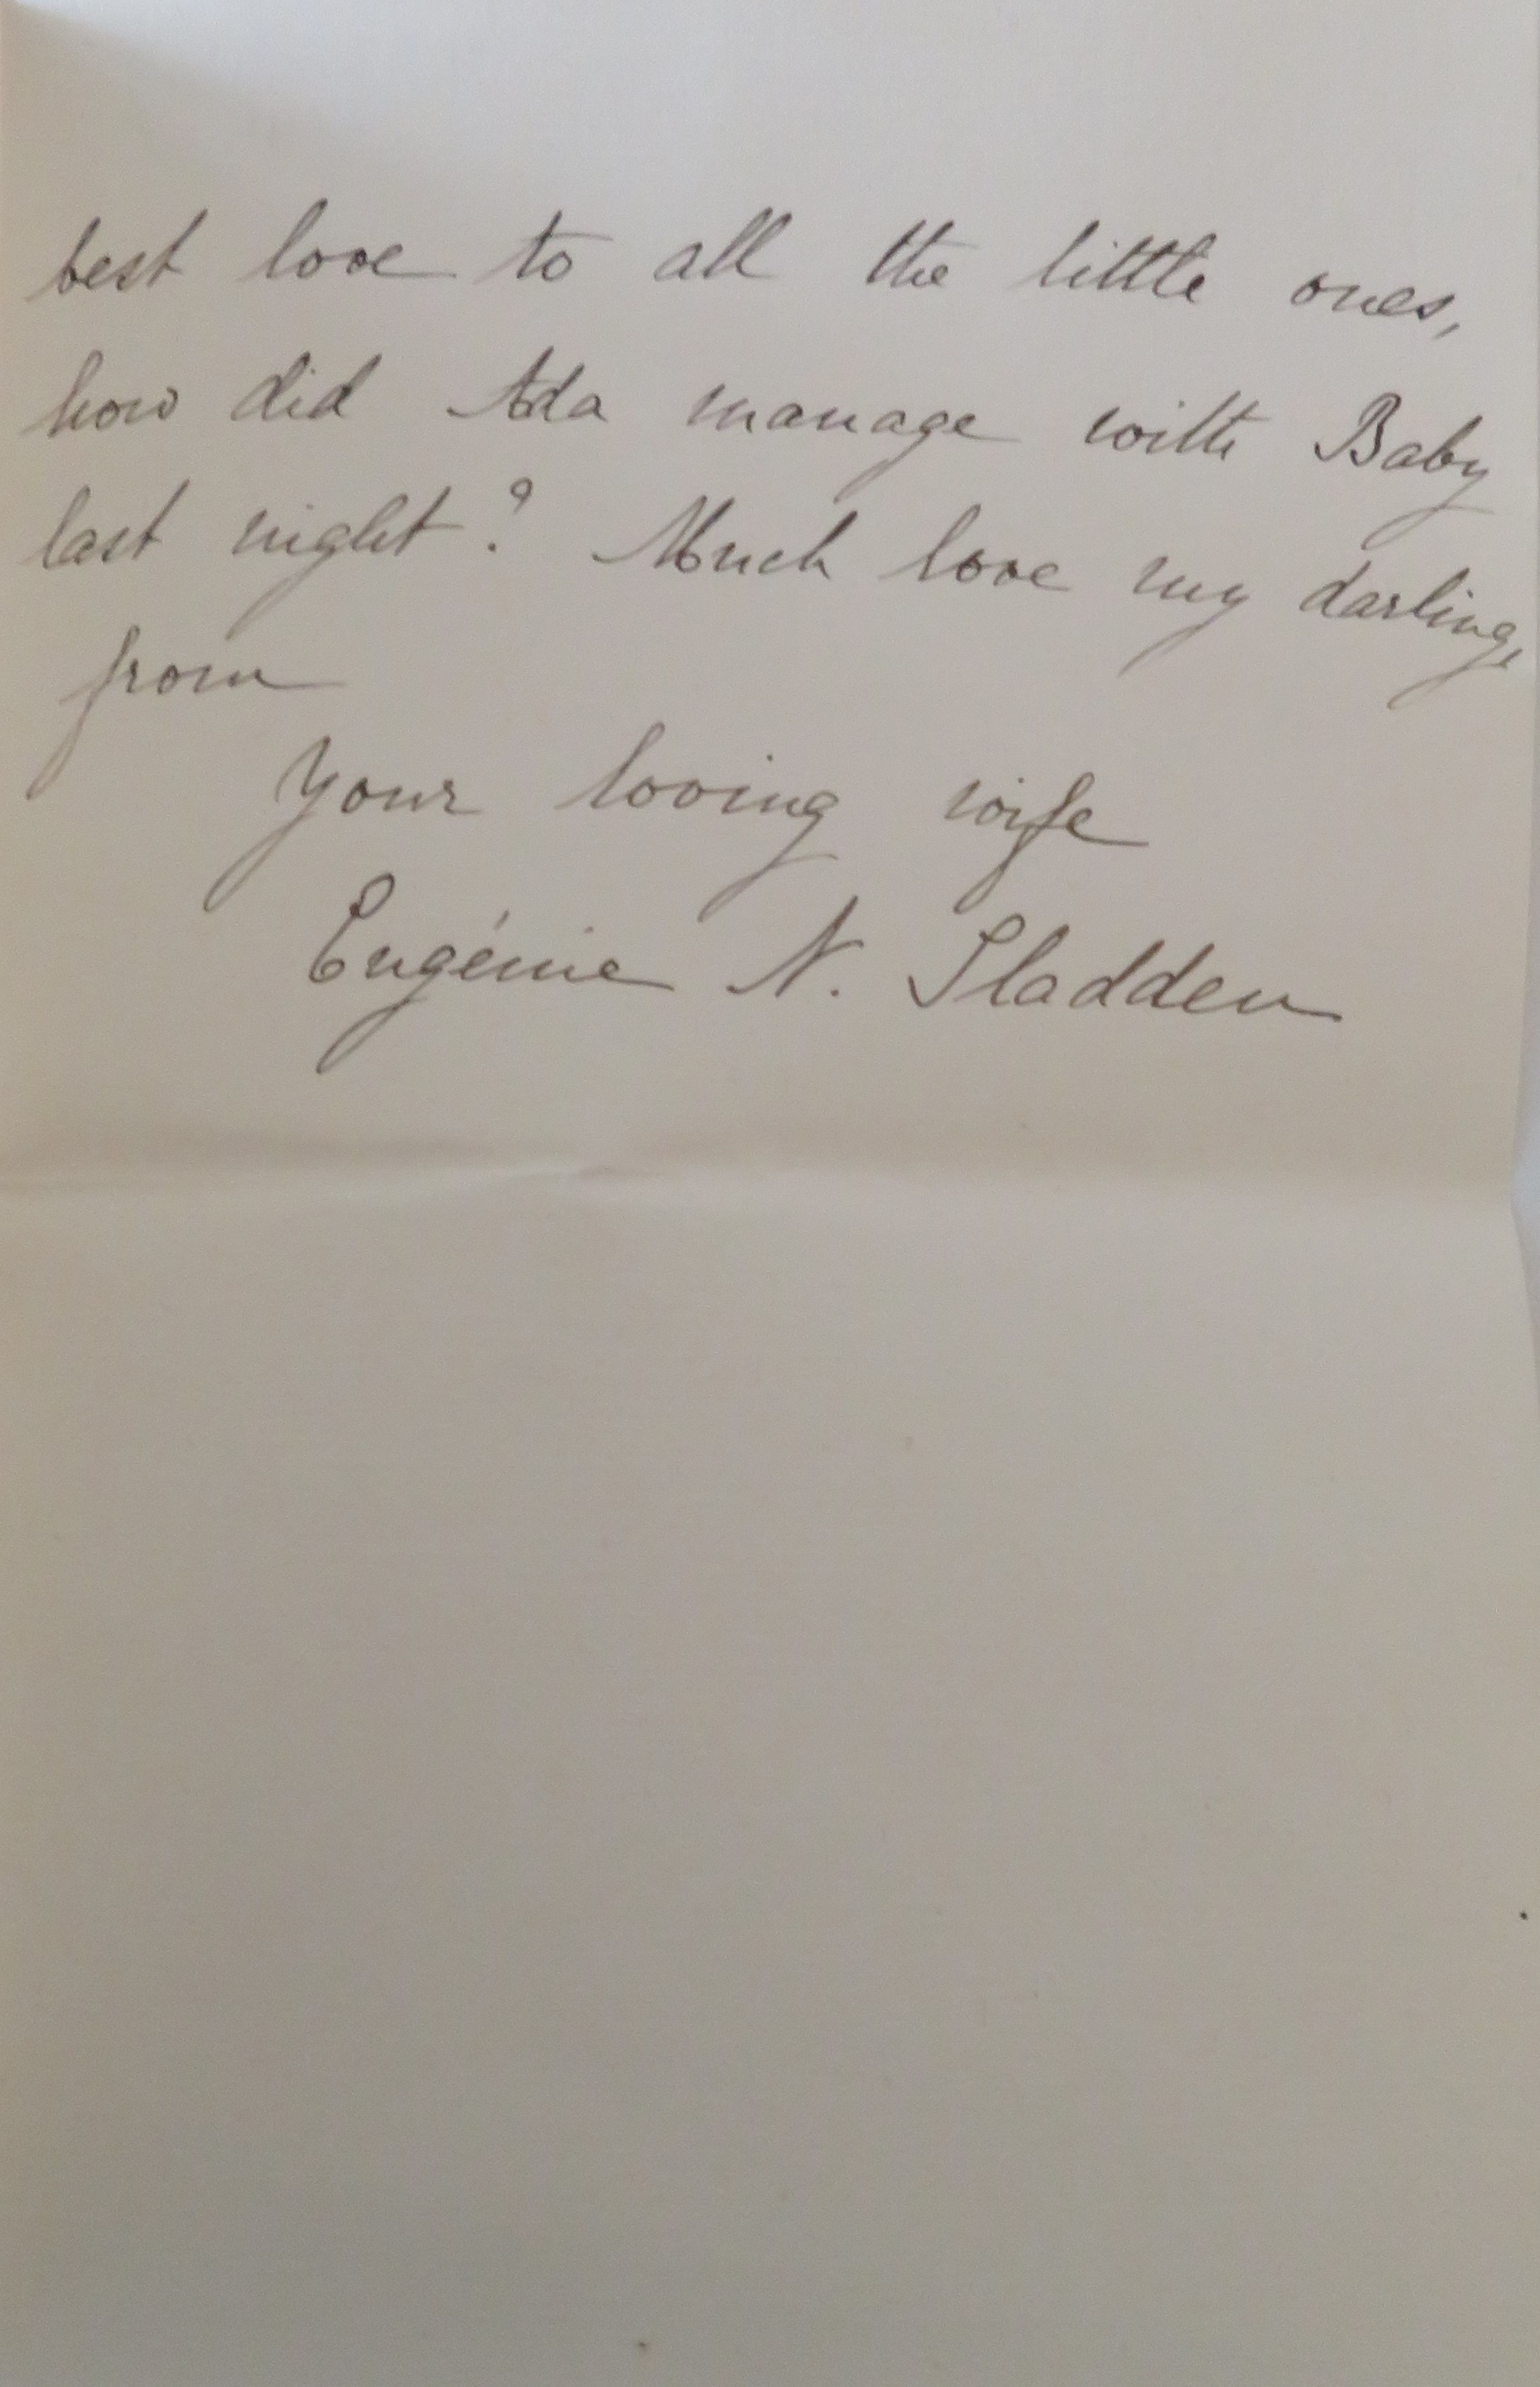 best love to all the little ones,
how did Ada manage with Baby
last night? Much love my darling,
from
Your loving wife
Eugénie N. Sladden